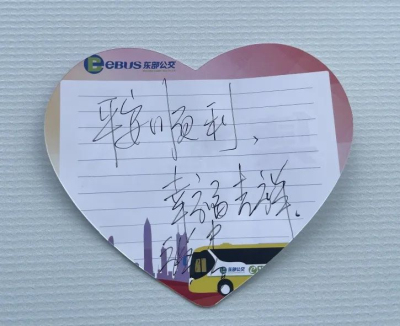 eBUS东部公交
平安顺利、
幸福吉祥。
东部公交